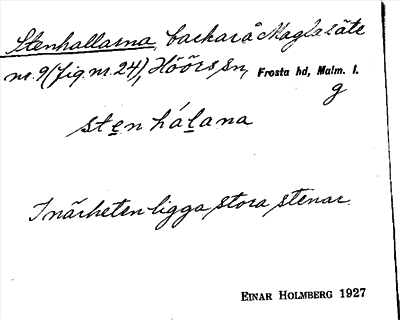 Stenhallarna, backar å Maglasäte
nr. 9 (fig. nr. 24), Höörs sn, Frosta hd, Malm. l.
g
stenhálana
I närheten ligga stora stenar.
EINAR HOLMBERG 1927